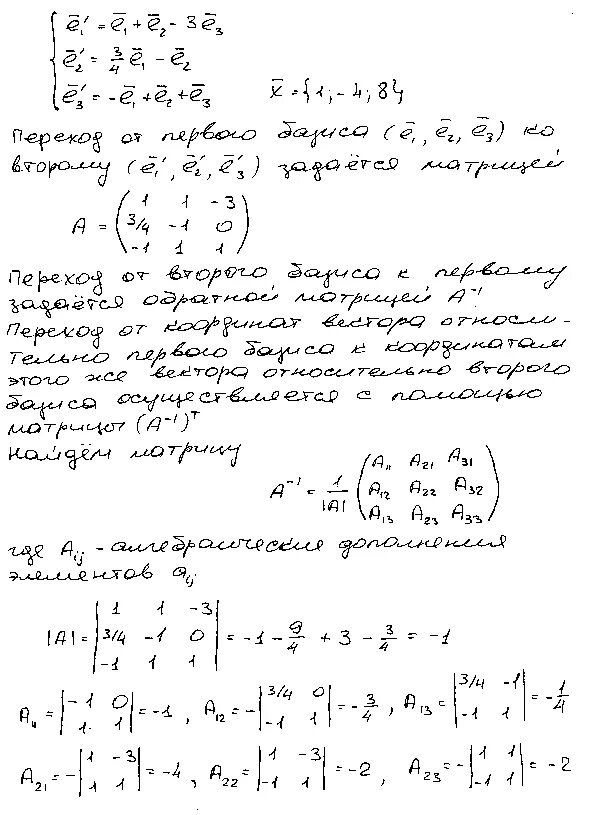 ē₁' = ē₁ + ē₂ - 3ē₃
ē₂' = 3/4 ē₁ - ē₂
ē₃' = -ē₁ + ē₂ + ē₃   x̄ = {1; -4; 8}
Переход от первого базиса (ē₁, ē₂, ē₃) ко
второму (ē₁', ē₂', ē₃') задаётся матрицей
A = ( 1 1 -3
3/4 -1 0
-1 1 1 )
Переход от второго базиса к первому
задаётся обратной матрицей A⁻¹
Переход от координат вектора относи-
тельно первого базиса к координатам
этого же вектора относительно второго
базиса осуществляется с помощью
матрицы (A⁻¹)ᵀ
Найдём матрицу
A⁻¹ = 1/|A| ( A₁₁ A₂₁ A₃₁
A₁₂ A₂₂ A₃₂
A₁₃ A₂₃ A₃₃ )
где Aᵢⱼ - алгебраические дополнения
элементов aᵢⱼ
|A| = | 1 1 -3
3/4 -1 0
-1 1 1 | = -1 - 9/4 + 3 - 3/4 = -1
A₁₁ = | -1 0; 1 1 | = -1, A₁₂ = -| 3/4 0; -1 1 | = -3/4, A₁₃ = | 3/4 -1; -1 1 | = -1/4
A₂₁ = -| 1 -3; 1 1 | = -4, A₂₂ = | 1 -3; -1 1 | = -2, A₂₃ = -| 1 1; -1 1 | = -2